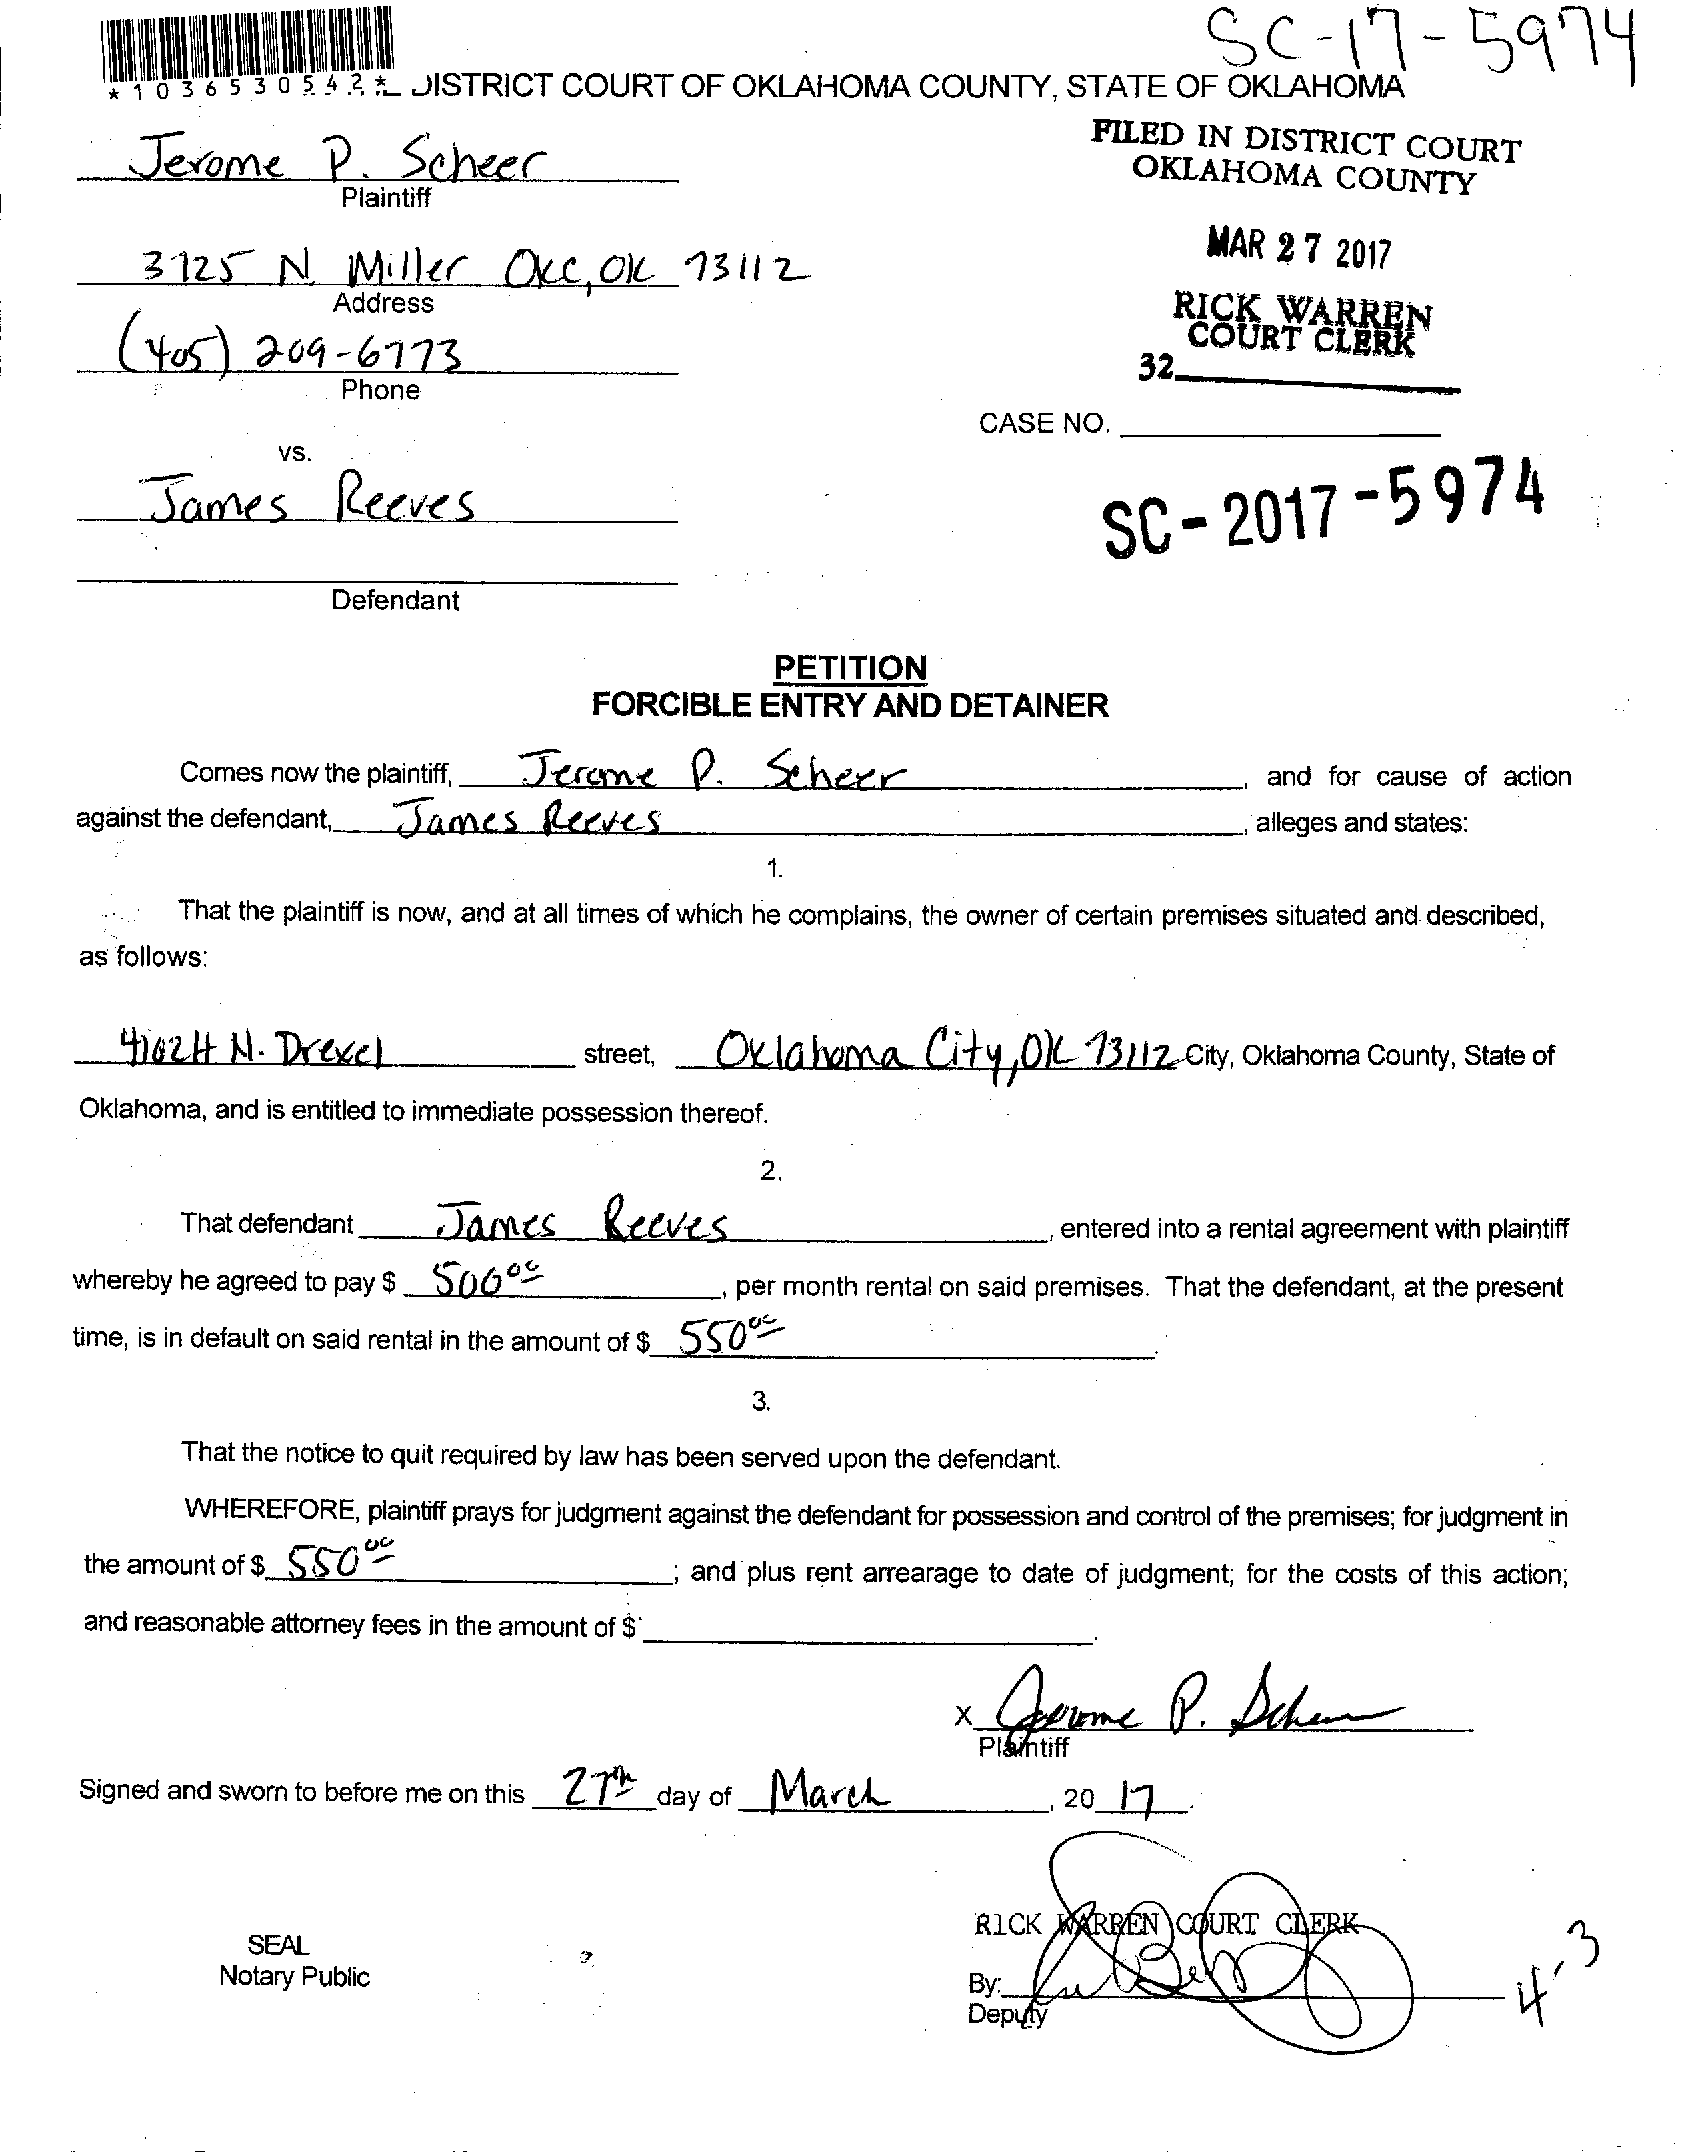 SC-17-5974
*1036530542*
DISTRICT COURT OF OKLAHOMA COUNTY, STATE OF OKLAHOMA
Jerome P. Scheer
Plaintiff
FILED IN DISTRICT COURT
OKLAHOMA COUNTY
3725 N. Miller OKC, OK 73112
Address
MAR 27 2017
(405) 209-6773
Phone
RICK WARREN
COURT CLERK
32
CASE NO.
vs.
James Reeves
SC-2017-5974
Defendant
PETITION
FORCIBLE ENTRY AND DETAINER
Comes now the plaintiff, Jerome P. Scheer, and for cause of action
against the defendant, James Reeves, alleges and states:
1.
That the plaintiff is now, and at all times of which he complains, the owner of certain premises situated and described,
as follows:
N. Drexel street, Oklahoma City, OK 73112 City, Oklahoma County, State of
Oklahoma, and is entitled to immediate possession thereof.
2.
That defendant James Reeves, entered into a rental agreement with plaintiff
whereby he agreed to pay $ 500 00, per month rental on said premises. That the defendant, at the present
time, is in default on said rental in the amount of $ 550 00.
3.
That the notice to quit required by law has been served upon the defendant.
WHEREFORE, plaintiff prays for judgment against the defendant for possession and control of the premises; for judgment in
the amount of $ 550 00; and plus rent arrearage to date of judgment; for the costs of this action;
and reasonable attorney fees in the amount of $ .
X Jerome P. Scheer
Plaintiff
Signed and sworn to before me on this 27th day of March, 20 17.
RICK WARREN COURT CLERK
SEAL
Notary Public
By:
Deputy
4-3